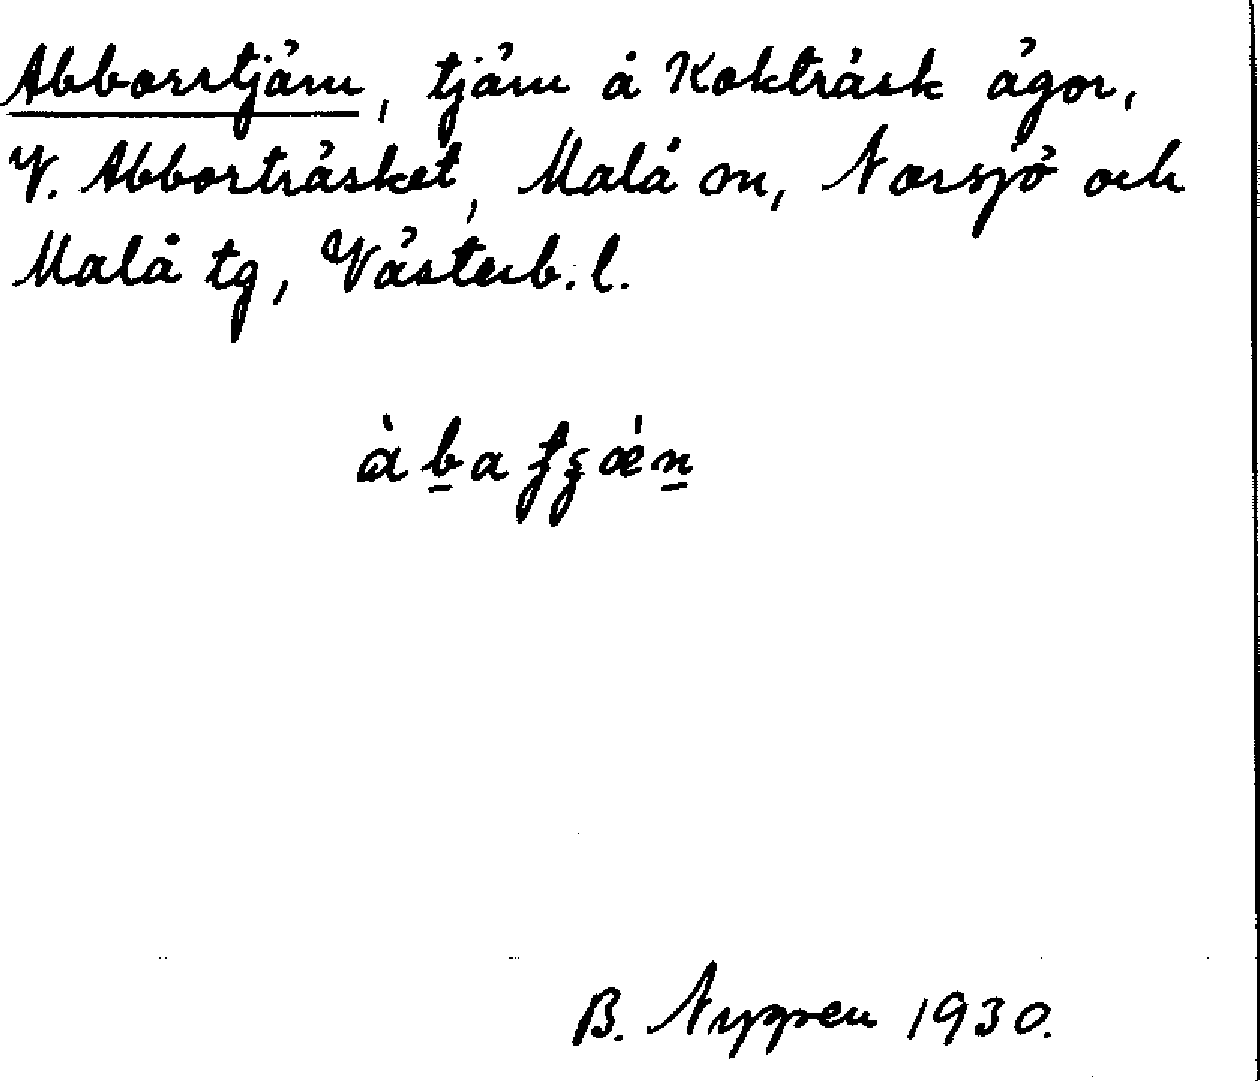 Abborrtjärn, tjärn å Kokträsk ägor,
V. Abborträsket, Malå sn, Norsjö och
Malå tg, Västerb. l.
B. Nygren 1930.